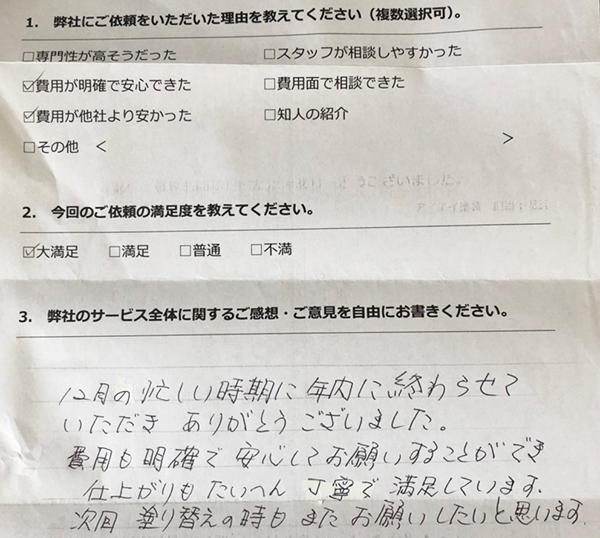 1. 弊社にご依頼をいただいた理由を教えてください（複数選択可）。
□専門性が高そうだった □スタッフが相談しやすかった
☑費用が明確で安心できた □費用面で相談できた
☑費用が他社より安かった □知人の紹介
□その他 < >
2. 今回のご依頼の満足度を教えてください。
☑大満足 □満足 □普通 □不満
3. 弊社のサービス全体に関するご感想・ご意見を自由にお書きください。
12月の忙しい時期に年内に終わらせて
いただき ありがとうございました。
費用も明確で安心してお願いすることができ
仕上がりもたいへん 丁寧で満足しています。
次回 塗り替えの時も またお願いしたいと思います。